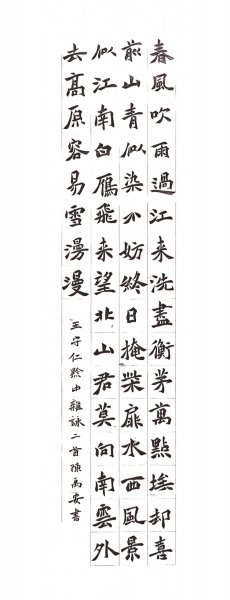 春風吹雨過江来洗盡衡茅萬點埃却喜
前山青似染不妨終日掩柴扉水西風景
似江南白鴈飛来望北山君莫向南雲外
去高原容易雪漫漫
王守仁黔中雜詠二首陳禹安書